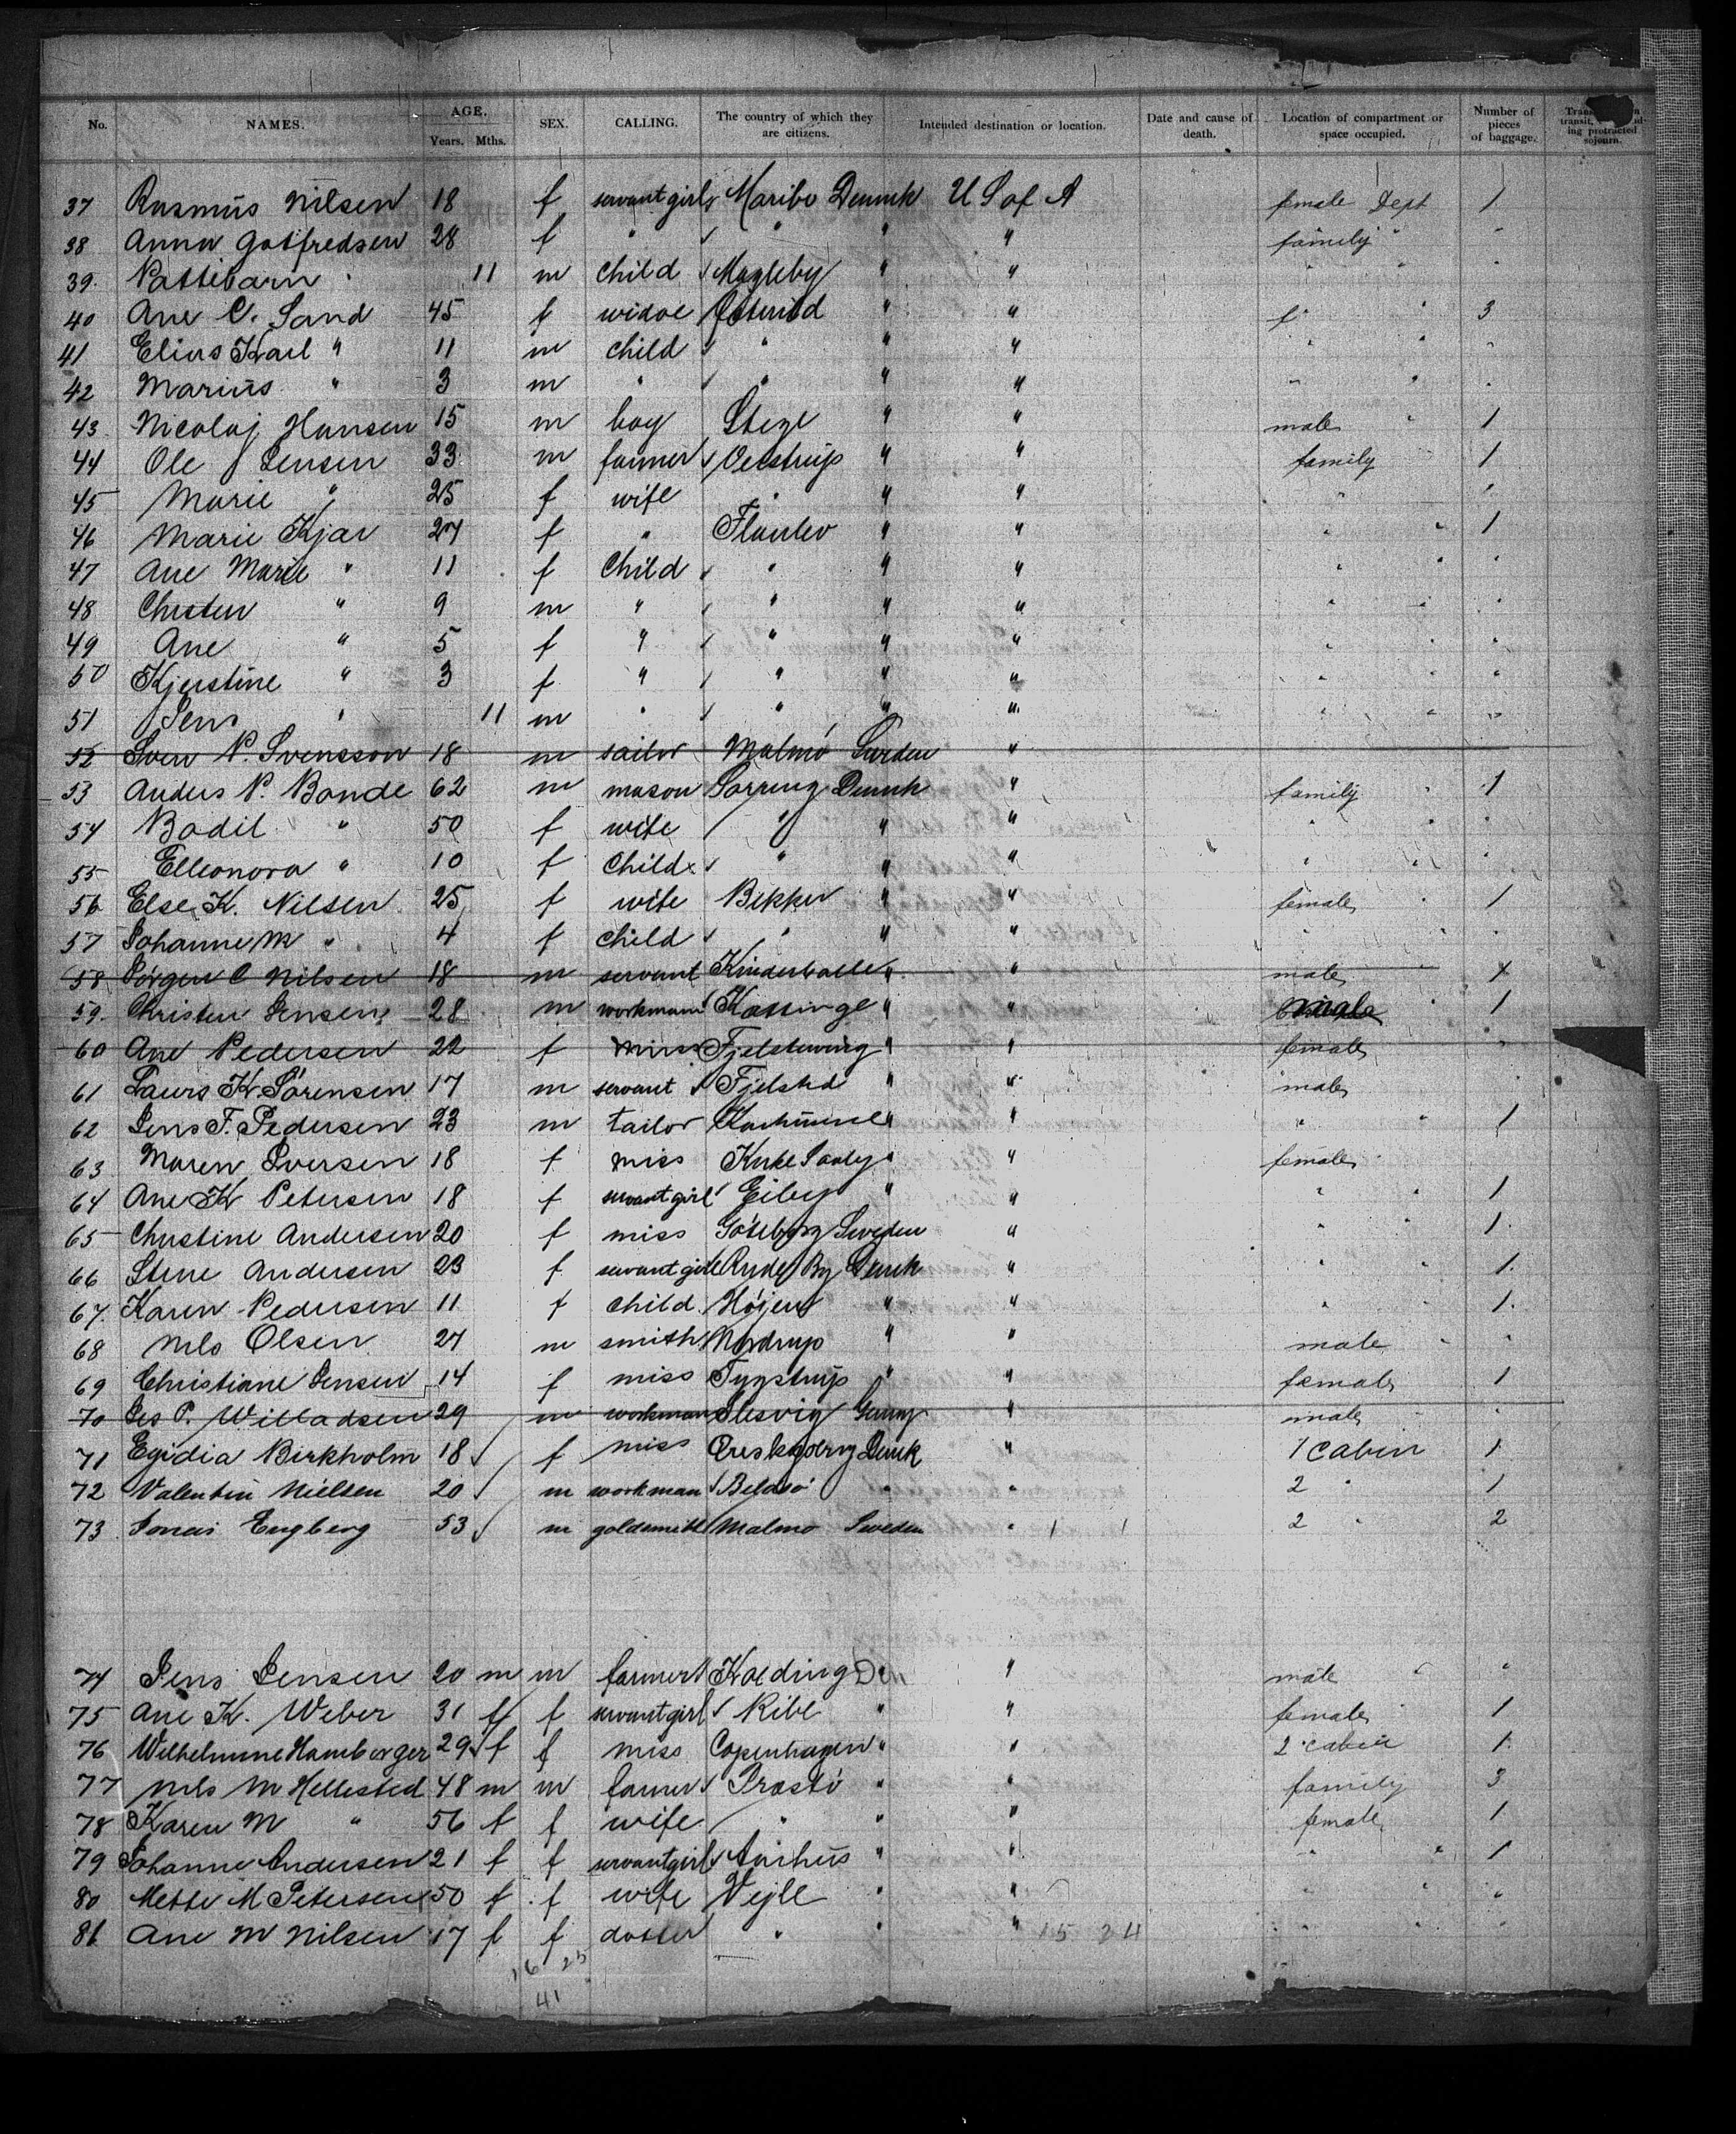 No. NAMES. AGE. Years. Mths. SEX. CALLING. The country of which they are citizens. Intended destination or location. Date and cause of death. Location of compartment or space occupied. Number of pieces of baggage. transit, ing protracted sojourn.
37 Rasmus Nilsen 18 f servant girl Maribo Denmk U S of A female Dept 1
38 Anna Gotfredsen 28 f " " " " family "
39. Pattebarn 11 m child Magleby " " " "
40 Ane C. Sand 45 f widoe " " f " 3
41 Elius Karl " 11 m child " " " " "
42 Marius " 3 m " " " " " "
43 Nicolaj Hansen 15 m boy Stege " " male " 1
44 Ole J Jensen 33 m farmer Vestrup " " family 1
45 Marie " 25 f wife " " " "
46 Marie Kjar 27 f " Flautev " " " " 1
47 Ane Marie " 11 f Child " " " " "
48 Christen " 9 m " " " " " "
49 Ane " 5 f " " " " "
50 Kjerstine " 3 f " " " " " "
51 Jens " 11 m " " " " " "
52 Sven P. Svensson 18 m sailor Malmö Sweden "
53 Anders P. Bonde 62 m mason Sorring Denmk " family " 1
54 Bodil " 50 f wife " " " " "
55 Elleonora " 10 f Child " " " " "
56 Else K. Nilsen 25 f wife Bekker " " female 1
57 Johanne M " 4 f child " " " " "
58 Jörgen C Nilsen 18 m servant " " male
59. Christen Jensen 28 m workman Kattinge " " " 1
60 Ane Pedersen 22 f miss " " female "
61 Laurs K. Sörensen 17 m servant Fjelsted " " male
62 Jens F. Pedersen 23 m tailor " " " " 1
63 Maren Iversen 18 f miss " " female
64 Ane K Petersen 18 f servant girl Eiby " " " " 1
65 Christine Andersen 20 f miss Göteborg Sweden " " " 1.
66 Stene Andersen 23 f servant girl Ryde By Denmk " " " 1.
67. Karen Pedersen 11 f child Höjen " " " 1.
68 Nils Olsen 27 m smith Nordrup " " male "
69 Christiane Jensen 14 f miss Tygstrup " " female 1
70 Jes P. Willadsen 29 m workman Slesvig Germy " male
71 Egidia Birkholm 18 f miss Denmk " 1 Cabin 1
72 Valentin Nielsen 20 m workman " " 2 " 1
73 Jonas Engberg 53 m goldsmith Malmo Sweden " 1 1 2 " 2
74 Jens Jensen 20 m m farmer Kolding Den " male " "
75 Ane K. Weber 31 f f servant girl Ribe " " female 1
76 Wilhelmine Hamborger 29 f f miss Copenhagen " " 2 cabin 1
77 Nils M Hellested 48 m m farmer Prastö " " family 3
78 Karen M " 56 f f wife " " " female 1
79 Johanne Andersen 21 f f servant girl Aarhus " " " " 1
80 Mette M Petersen 50 f f wife Vejle " " " " "
81 Ane M Nilsen 17 f f dotter " " " 15 24 " " "
16 25
41